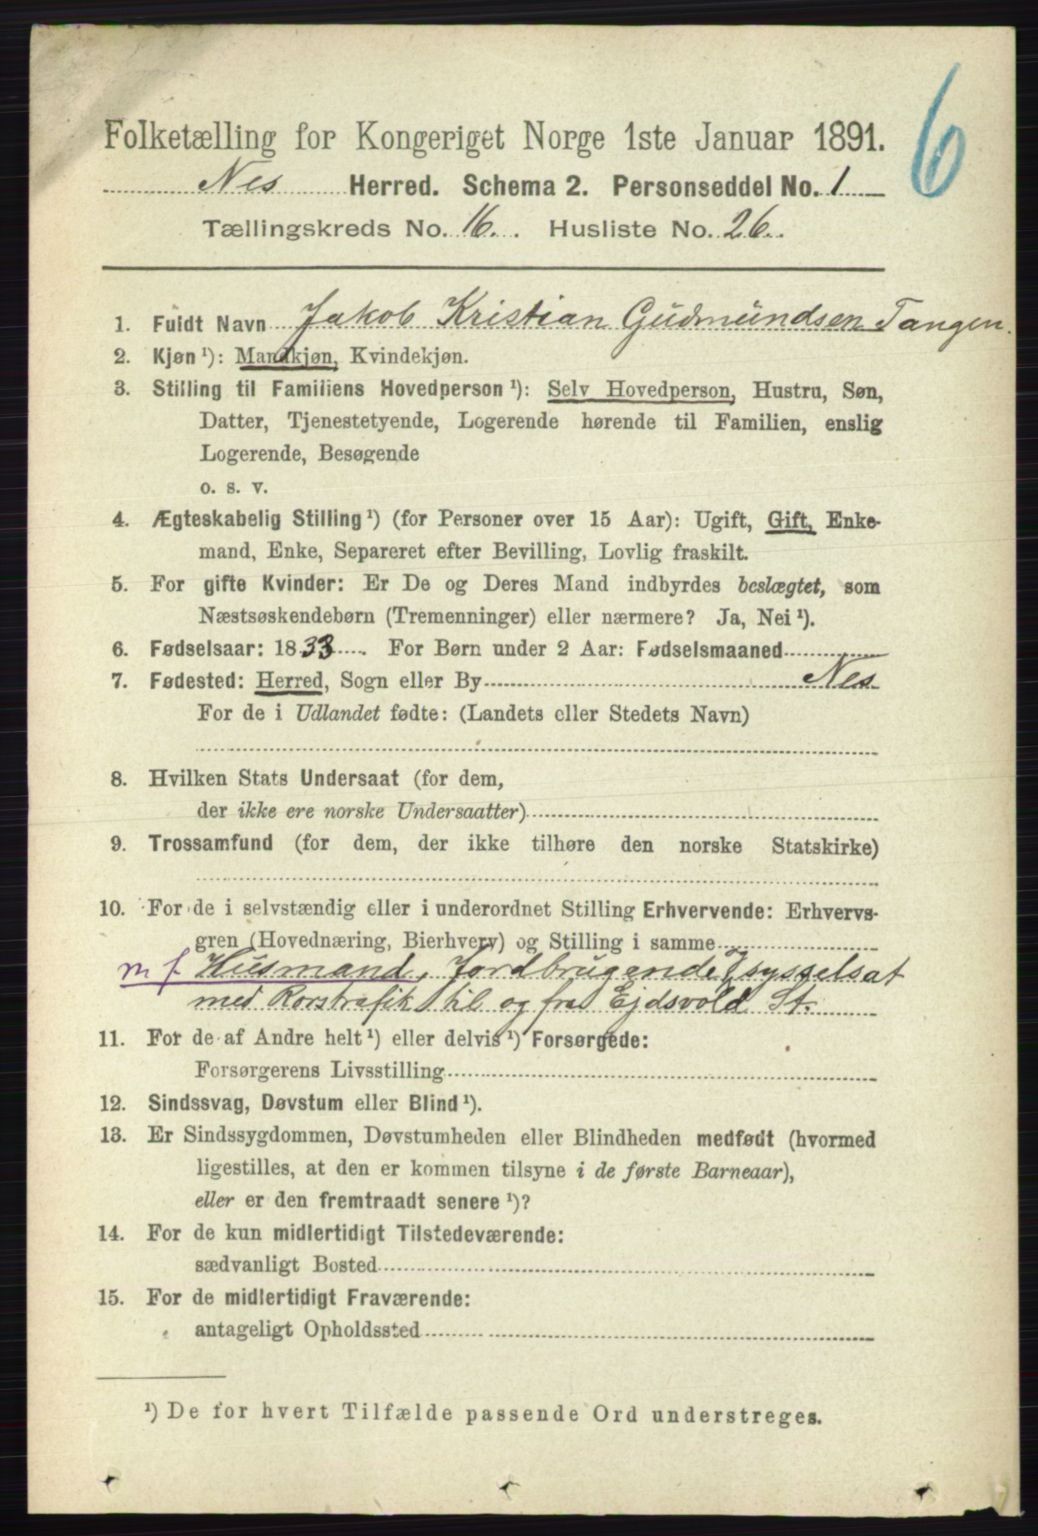 6
Folketælling for Kongeriget Norge 1ste Januar 1891.
Nes Herred. Schema 2. Personseddel No. 1
Tællingskreds No. 16. Husliste No. 26.
1. Fuldt Navn Jakob Kristian Gudmundsen Tangen.
2. Kjøn ¹): Mandkjøn, Kvindekjøn.
3. Stilling til Familiens Hovedperson ¹): Selv Hovedperson, Hustru, Søn,
Datter, Tjenestetyende, Logerende hørende til Familien, enslig
Logerende, Besøgende
o. s. v.
4. Ægteskabelig Stilling ¹) (for Personer over 15 Aar): Ugift, Gift, Enke-
mand, Enke, Separeret efter Bevilling, Lovlig fraskilt.
5. For gifte Kvinder: Er De og Deres Mand indbyrdes beslægtet, som
Næstsøskendebørn (Tremenninger) eller nærmere? Ja, Nei ¹).
6. Fødselsaar: 1833. For Børn under 2 Aar: Fødselsmaaned
7. Fødested: Herred, Sogn eller By Nes
For de i Udlandet fødte: (Landets eller Stedets Navn)
8. Hvilken Stats Undersaat (for dem,
der ikke ere norske Undersaatter)
9. Trossamfund (for dem, der ikke tilhøre den norske Statskirke)
10. For de i selvstændig eller i underordnet Stilling Erhvervende: Erhvervs-
gren (Hovednæring, Bierhverv) og Stilling i samme
m f. Husmand, Jordbrugende, sysselsat
med til og fra Ejdsvold St.
11. For de af Andre helt ¹) eller delvis ¹) Forsørgede:
Forsørgerens Livsstilling
12. Sindssvag, Døvstum eller Blind ¹).
13. Er Sindssygdommen, Døvstumheden eller Blindheden medfødt (hvormed
ligestilles, at den er kommen tilsyne i de første Barneaar),
eller er den fremtraadt senere ¹)?
14. For de kun midlertidigt Tilstedeværende:
sædvanligt Bosted
15. For de midlertidigt Fraværende:
antageligt Opholdssted
¹) De for hvert Tilfælde passende Ord understreges.